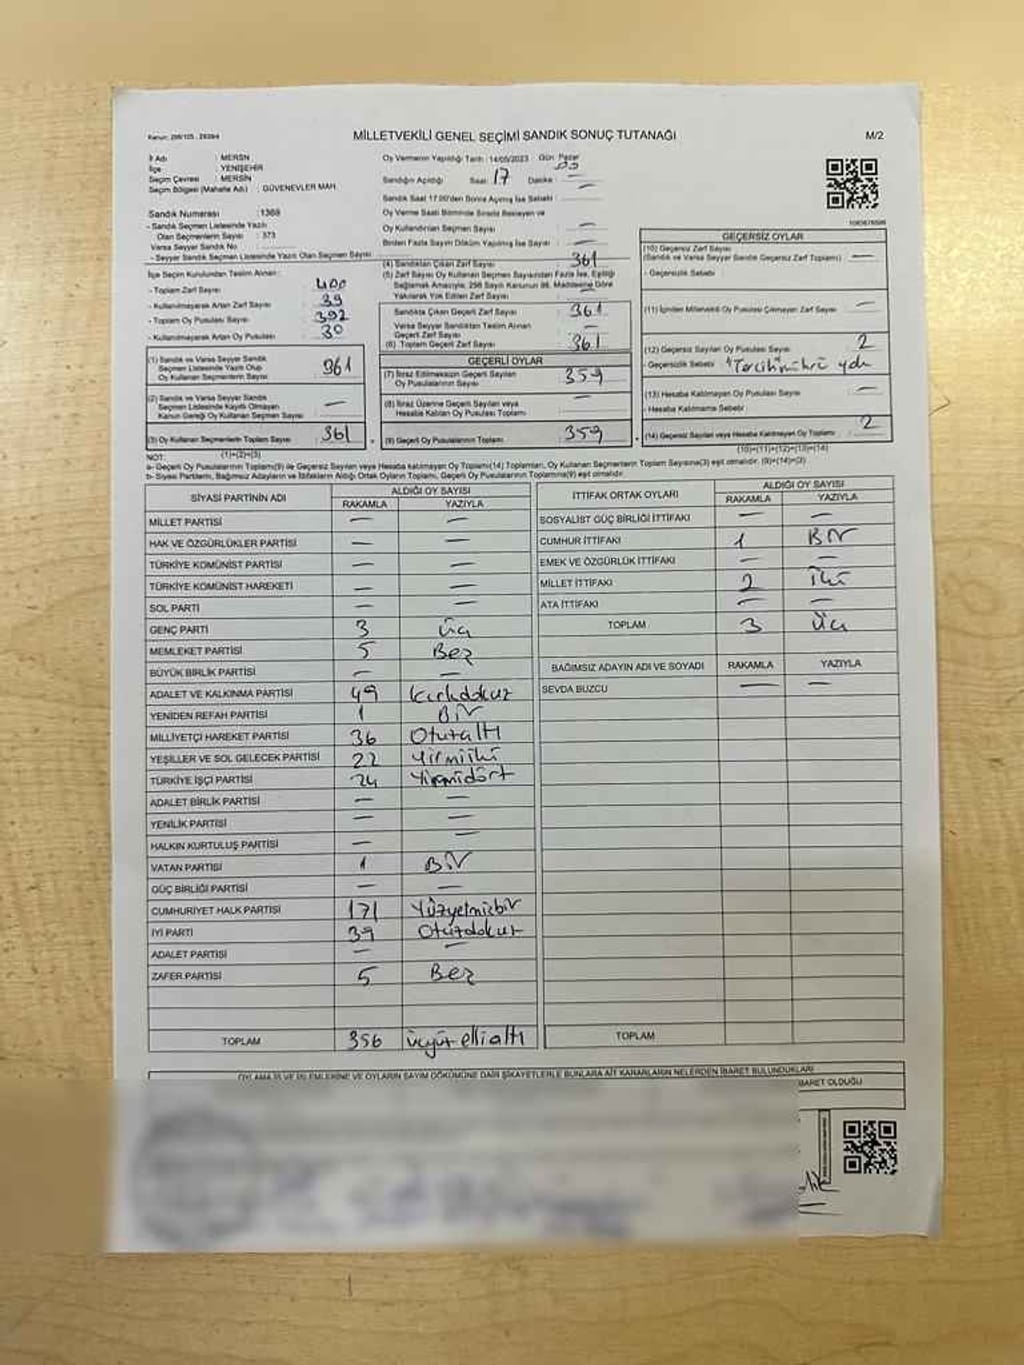 Kanun: 298/105 - 2839/4
MİLLETVEKİLİ GENEL SEÇİMİ SANDIK SONUÇ TUTANAĞI
M/2
İl Adı : MERSİN
İlçe : YENİŞEHİR
Seçim Çevresi : MERSİN
Seçim Bölgesi (Mahalle Adı) : GÜVENEVLER MAH.
Sandık Numarası : 1369
- Sandık Seçmen Listesinde Yazılı
Olan Seçmenlerin Sayısı : 373
Varsa Seyyar Sandık No
- Seyyar Sandık Seçmen Listesinde Yazılı Olan Seçmen Sayısı
İlçe Seçim Kurulundan Teslim Alınan :
- Toplam Zarf Sayısı 400
- Kullanılmayarak Artan Zarf Sayısı 39
- Toplam Oy Pusulası Sayısı 392
- Kullanılmayarak Artan Oy Pusulası 30
(1) Sandık ve Varsa Seyyar Sandık
Seçmen Listesinde Yazılı Olup
Oy Kullanan Seçmenlerin Sayısı 361
(2) Sandık ve Varsa Seyyar Sandık
Seçmen Listesinde Kayıtlı Olmayan
Kanun Gereği Oy Kullanan Seçmen Sayısı —
(3) Oy Kullanan Seçmenlerin Toplam Sayısı 361
(1)+(2)=(3)
Oy Vermenin Yapıldığı Tarih : 14/05/2023 Gün: Pazar
Sandığın Açıldığı Saat: 17 Dakika : 00
Sandık Saat 17.00'den Sonra Açılmış İse Sebebi : —
Oy Verme Saati Bitiminde Sırada Bekleyen ve
Oy Kullandırılan Seçmen Sayısı —
Birden Fazla Sayım Döküm Yapılmış İse Sayısı —
(4) Sandıktan Çıkan Zarf Sayısı 361
(5) Zarf Sayısı Oy Kullanan Seçmen Sayısından Fazla İse, Eşitliği
Sağlamak Amacıyla, 298 Sayılı Kanunun 98. Maddesine Göre
Yakılarak Yok Edilen Zarf Sayısı —
Sandıkta Çıkan Geçerli Zarf Sayısı 361
Varsa Seyyar Sandıktan Teslim Alınan
Geçerli Zarf Sayısı —
(6) Toplam Geçerli Zarf Sayısı 361
GEÇERLİ OYLAR
(7) İtiraz Edilmeksizin Geçerli Sayılan
Oy Pusulalarının Sayısı 359
(8) İtiraz Üzerine Geçerli Sayılan veya
Hesaba Katılan Oy Pusulası Toplamı —
(9) Geçerli Oy Pusulalarının Toplamı 359
GEÇERSİZ OYLAR
(10) Geçersiz Zarf Sayısı
(Sandık ve Varsa Seyyar Sandık Geçersiz Zarf Toplamı) —
- Geçersizlik Sebebi
(11) İçinden Milletvekili Oy Pusulası Çıkmayan Zarf Sayısı —
(12) Geçersiz Sayılan Oy Pusulası Sayısı 2
- Geçersizlik Sebebi
(13) Hesaba Katılmayan Oy Pusulası Sayısı —
- Hesaba Katılmama Sebebi
(14) Geçersiz Sayılan veya Hesaba Katılmayan Oy Toplamı 2
(10)+(11)+(12)+(13)=(14)
NOT:
a- Geçerli Oy Pusulaları Toplamı(9) ile Geçersiz Sayılan veya Hesaba katılmayan Oy Toplamı(14) Toplamları, Oy Kullanan Seçmenlerin Toplam Sayısına(3) eşit olmalıdır. (9)+(14)=(3)
b- Siyasi Partilerin, Bağımsız Adayların ve İttifakların Aldığı Ortak Oyların Toplamı, Geçerli Oy Pusulalarının Toplamına(9) eşit olmalıdır.
SİYASİ PARTİNİN ADI ALDIĞI OY SAYISI
RAKAMLA YAZIYLA
MİLLET PARTİSİ — —
HAK VE ÖZGÜRLÜKLER PARTİSİ — —
TÜRKİYE KOMÜNİST PARTİSİ — —
TÜRKİYE KOMÜNİST HAREKETİ — —
SOL PARTİ — —
GENÇ PARTİ 3 üç
MEMLEKET PARTİSİ 5 Beş
BÜYÜK BİRLİK PARTİSİ — —
ADALET VE KALKINMA PARTİSİ 49 kırkdokuz
YENİDEN REFAH PARTİSİ 1 Bir
MİLLİYETÇİ HAREKET PARTİSİ 36 Otuzaltı
YEŞİLLER VE SOL GELECEK PARTİSİ 22 Yirmiiki
TÜRKİYE İŞÇİ PARTİSİ 24 Yirmidört
ADALET BİRLİK PARTİSİ — —
YENİLİK PARTİSİ — —
HALKIN KURTULUŞ PARTİSİ — —
VATAN PARTİSİ 1 Bir
GÜÇ BİRLİĞİ PARTİSİ — —
CUMHURİYET HALK PARTİSİ 171 Yüzyetmişbir
İYİ PARTİ 39 Otuzdokuz
ADALET PARTİSİ — —
ZAFER PARTİSİ 5 Beş
TOPLAM 356 üçyüz elli altı
İTTİFAK ORTAK OYLARI ALDIĞI OY SAYISI
RAKAMLA YAZIYLA
SOSYALİST GÜÇ BİRLİĞİ İTTİFAKI — —
CUMHUR İTTİFAKI 1 Bir
EMEK VE ÖZGÜRLÜK İTTİFAKI — —
MİLLET İTTİFAKI 2 iki
ATA İTTİFAKI — —
TOPLAM 3 Üç
BAĞIMSIZ ADAYIN ADI VE SOYADI RAKAMLA YAZIYLA
SEVDA BUZCU — —
TOPLAM
OYLAMA İŞ VE İŞLEMLERİNE VE OYLARIN SAYIM DÖKÜMÜNE DAİR ŞİKAYETLERLE BUNLARA AİT KARARLARIN NELERDEN İBARET BULUNDUKLARI
OLDUĞU